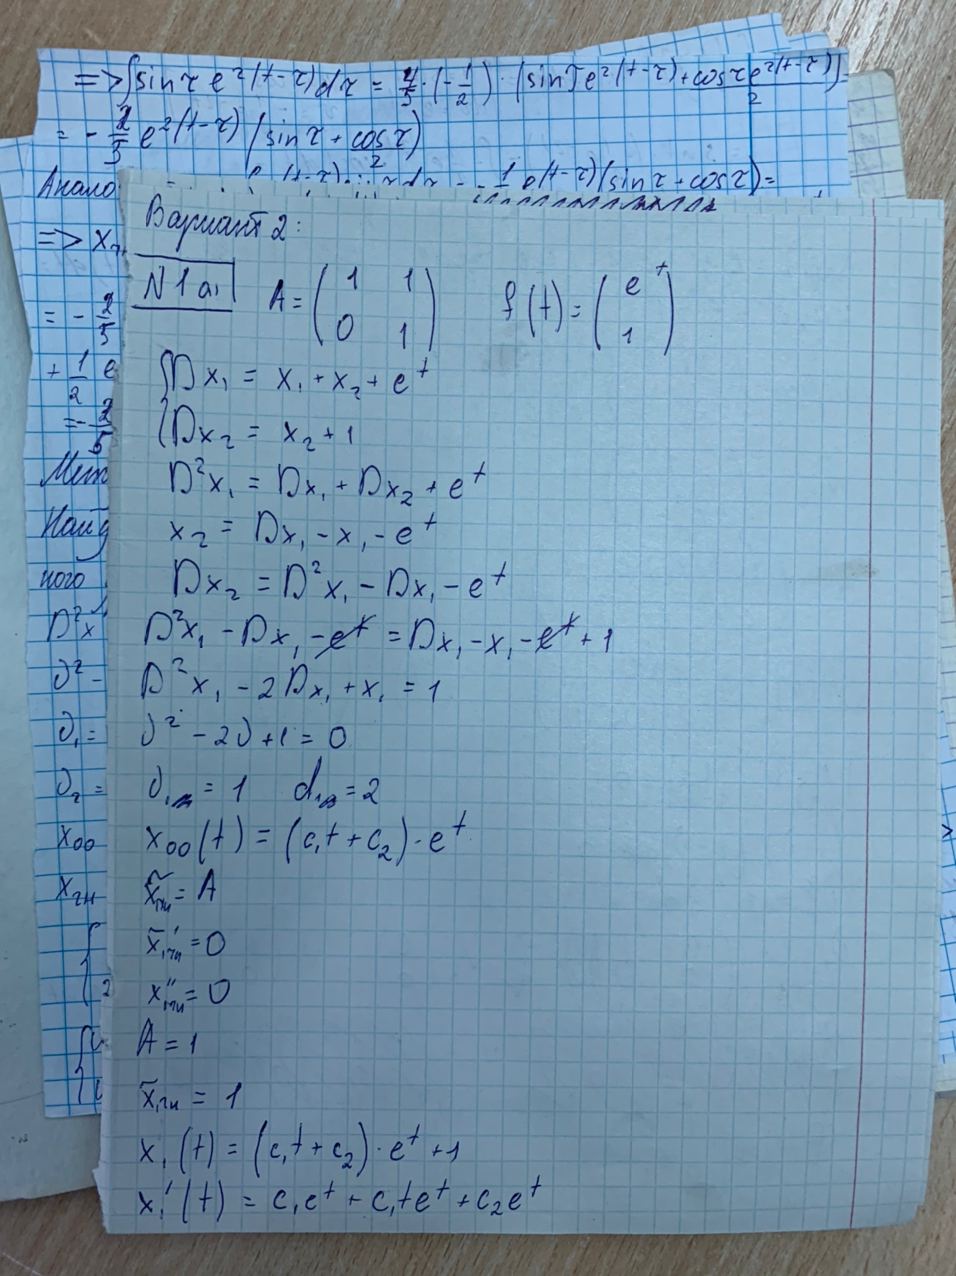 => ∫ sin τ e^{2(t-τ)} dτ = 4/5 · (-1/2) · (sin τ e^{2(t-τ)} + cos τ e^{2(t-τ)}/2)
= - 2/5 e^{2(t-τ)} (sin τ + cos τ/2)
Анало
e^{(t-τ)} sin τ dτ = - 1/2 e^{(t-τ)} (sin τ + cos τ) =
=> x
= - 2/5
+ 1/2 e
= - 2/5
Мет
Найд
ного
D²x
λ² -
λ₁ =
λ₂ =
x₀₀
xчн
Вариант 2:
N1 a₁
A = (1 1; 0 1) f(t) = (e^t; 1)
{ Dx₁ = x₁ + x₂ + e^t
Dx₂ = x₂ + 1
D²x₁ = Dx₁ + Dx₂ + e^t
x₂ = Dx₁ - x₁ - e^t
Dx₂ = D²x₁ - Dx₁ - e^t
D²x₁ - Dx₁ - e^t = Dx₁ - x₁ - e^t + 1
D²x₁ - 2Dx₁ + x₁ = 1
λ² - 2λ + 1 = 0
λ₁ = 1 d₁ = 2
x₀₀(t) = (c₁t + c₂) · e^t
x̃₁чн = A
x̃₁'чн = 0
x₁''чн = 0
A = 1
x̃₁чн = 1
x₁(t) = (c₁t + c₂) · e^t + 1
x₁'(t) = c₁e^t + c₁te^t + c₂e^t